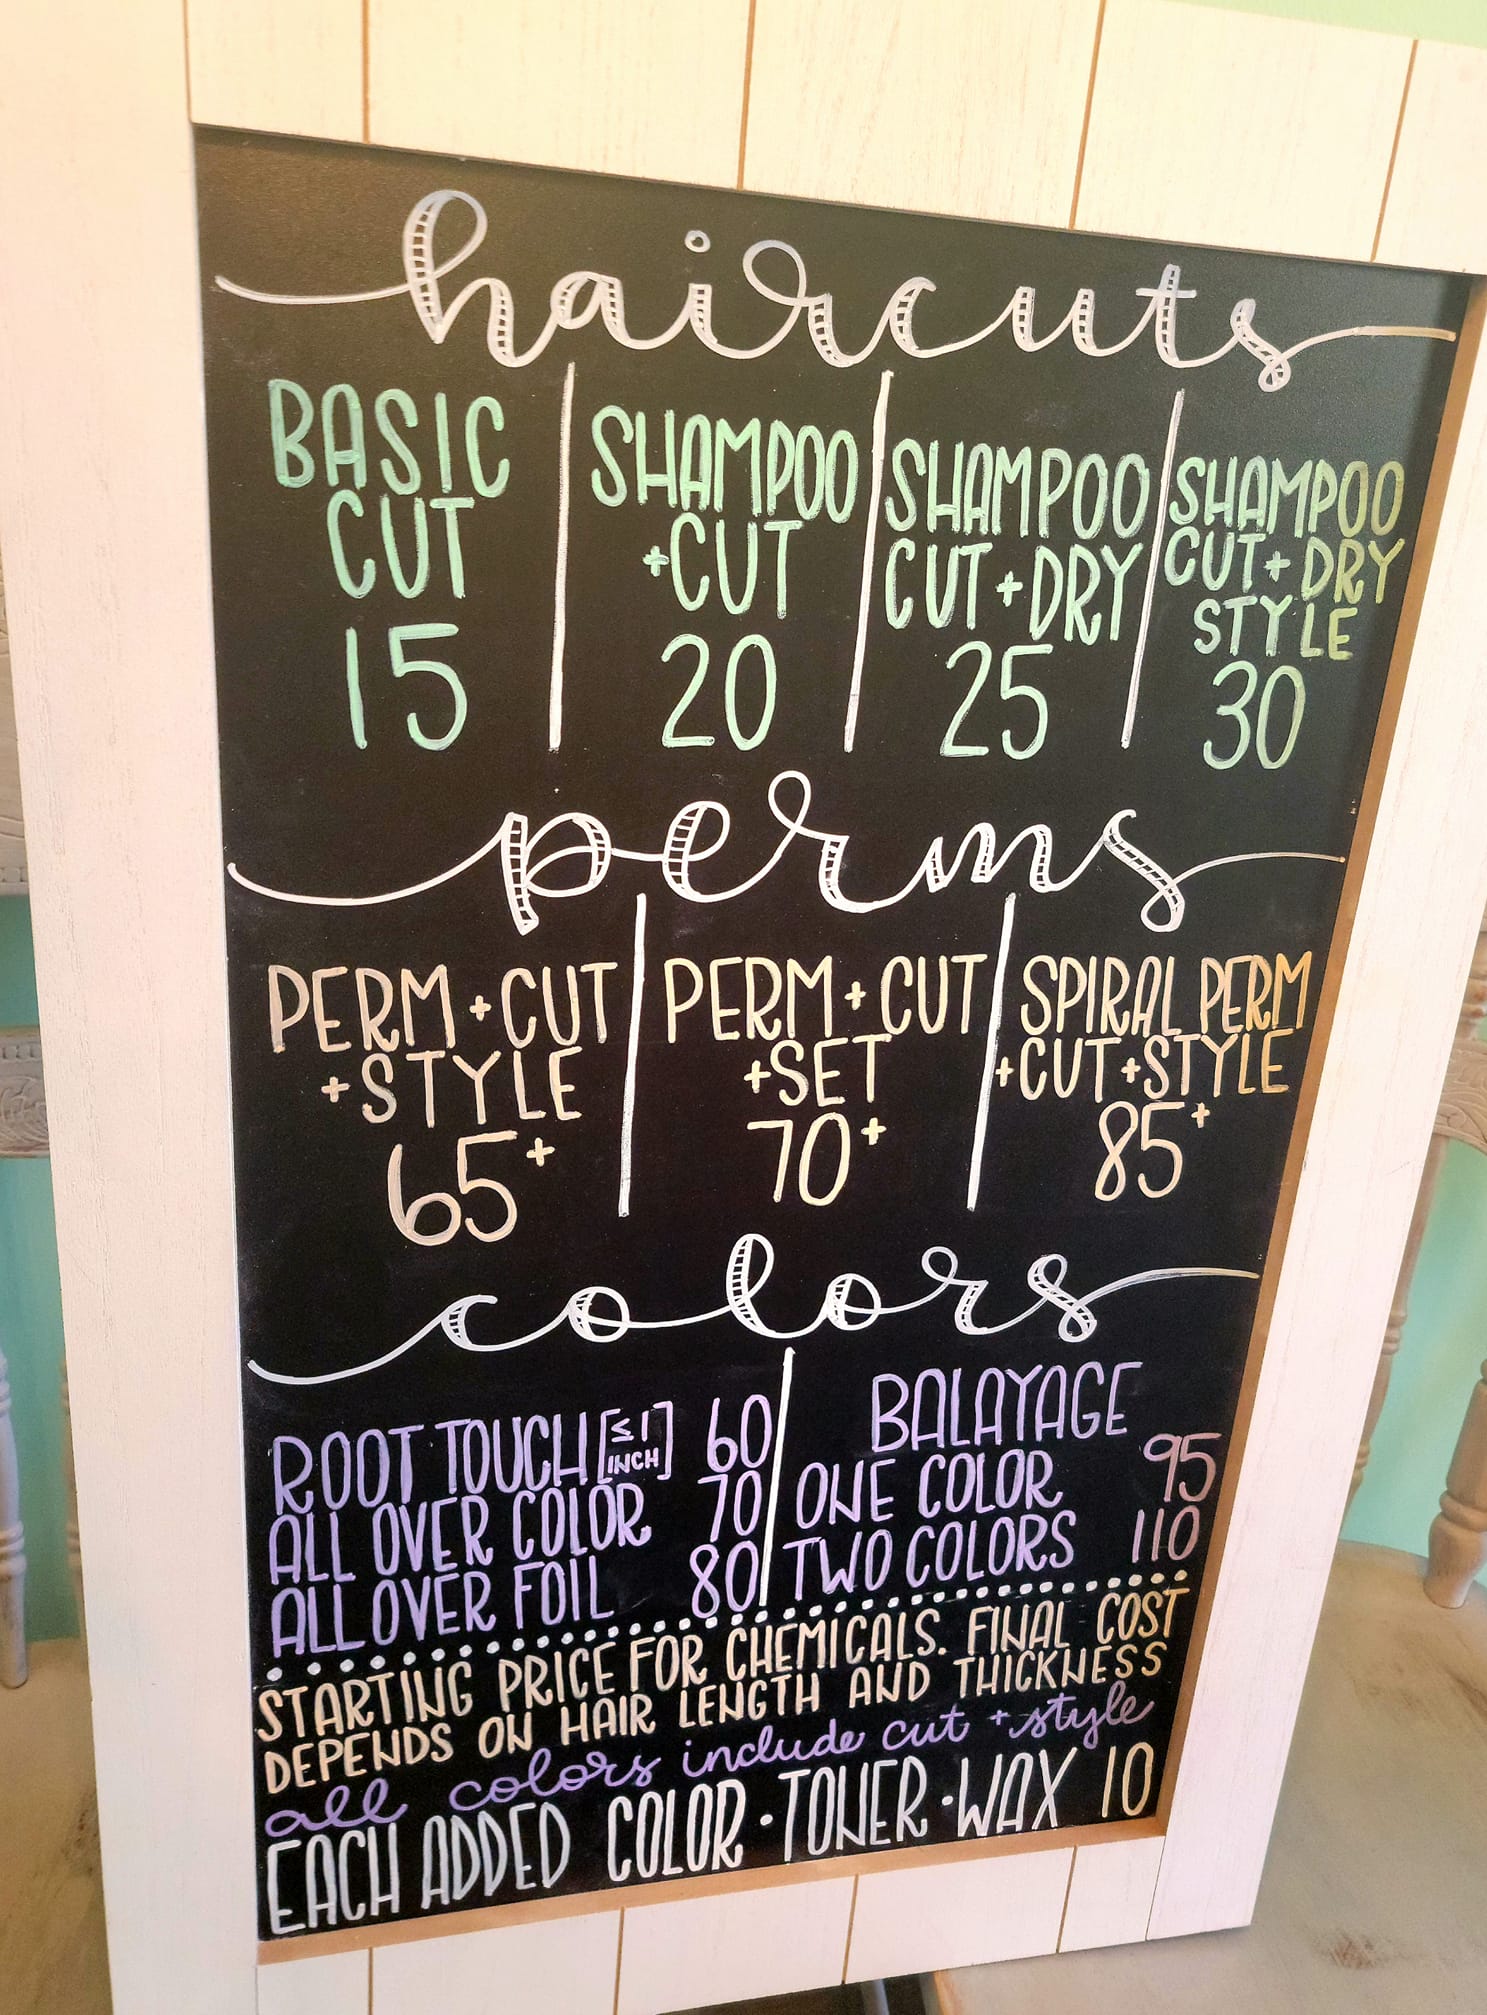 haircuts
BASIC
CUT
15
SHAMPOO
+CUT
20
SHAMPOO
CUT + DRY
25
SHAMPOO
CUT + DRY
STYLE
30
perms
PERM + CUT
+ STYLE
65+
PERM + CUT
+ SET
70+
SPIRAL PERM
+ CUT + STYLE
85+
colors
ROOT TOUCH [≤ 1 INCH] 60
ALL OVER COLOR 70
ALL OVER FOIL 80
BALAYAGE
ONE COLOR 95
TWO COLORS 110
STARTING PRICE FOR CHEMICALS. FINAL COST
DEPENDS ON HAIR LENGTH AND THICKNESS
all colors include cut + style
EACH ADDED COLOR · TONER · WAX 10